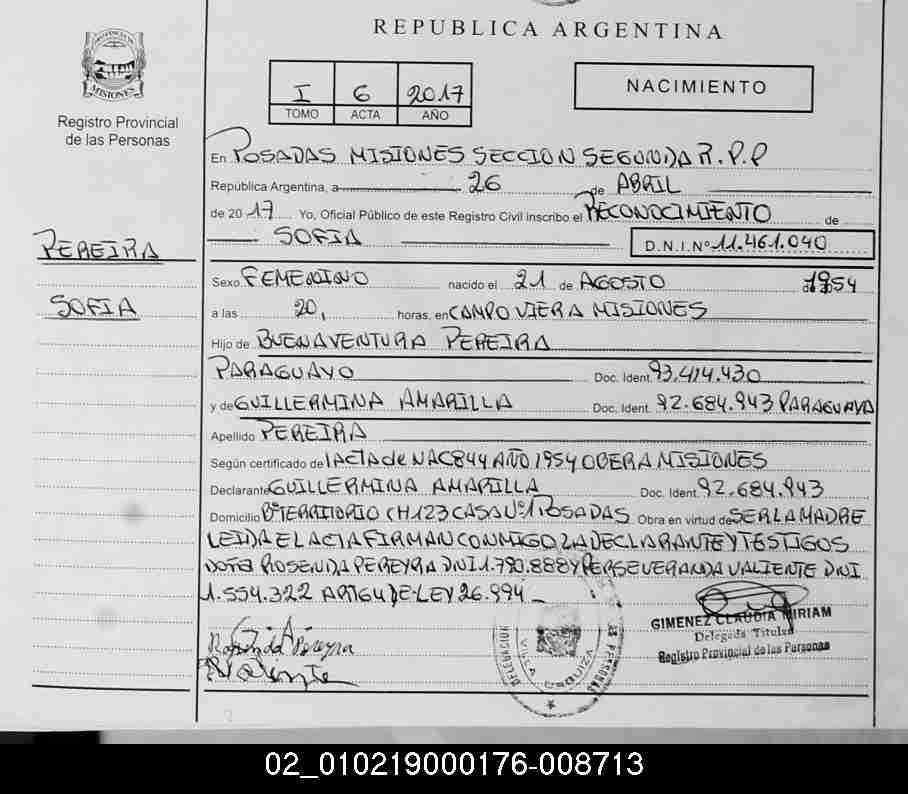 REPUBLICA ARGENTINA
PROVINCIA DE
MISIONES
Registro Provincial
de las Personas
I 6 2017
TOMO ACTA AÑO
NACIMIENTO
En POSADAS MISIONES SECCION SEGUNDA R.P.P
República Argentina, a 26 de ABRIL
de 2017 Yo, Oficial Público de este Registro Civil inscribo el RECONOCIMIENTO de
SOFIA D.N.I.Nº 11.461.040
PEREIRA
SOFIA
Sexo FEMENINO nacido el 21 de AGOSTO 1954
a las 20, horas, en CAMPO VIERA MISIONES
Hijo de BUENAVENTURA PEREIRA
PARAGUAYO Doc. Ident. 93.414.430
y de GUILLERMINA AMARILLA Doc. Ident. 92.684.943 PARAGUAYA
Apellido PEREIRA
Según certificado de 1 ACTA de NAC 844 AÑO 1954 OBERA MISIONES
Declarante GUILLERMINA AMARILLA Doc. Ident. 92.684.943
Domicilio Bº TERRITORIO CH 123 CASA Nº 1 POSADAS Obra en virtud de SER LA MADRE
LEIDA EL ACTA FIRMAN CONMIGO LA DECLARANTE Y TESTIGOS
ROSENDA PEREYRA DNI 1.790.888 Y PERSEVERANDA VALIENTE DNI
1.554.322 LEY 26.994
GIMENEZ CLAUDIA MIRIAM
Delegada Titular
Registro Provincial de las Personas
DELEGACION
VILLA URQUIZA
PERSONAS
02_010219000176-008713